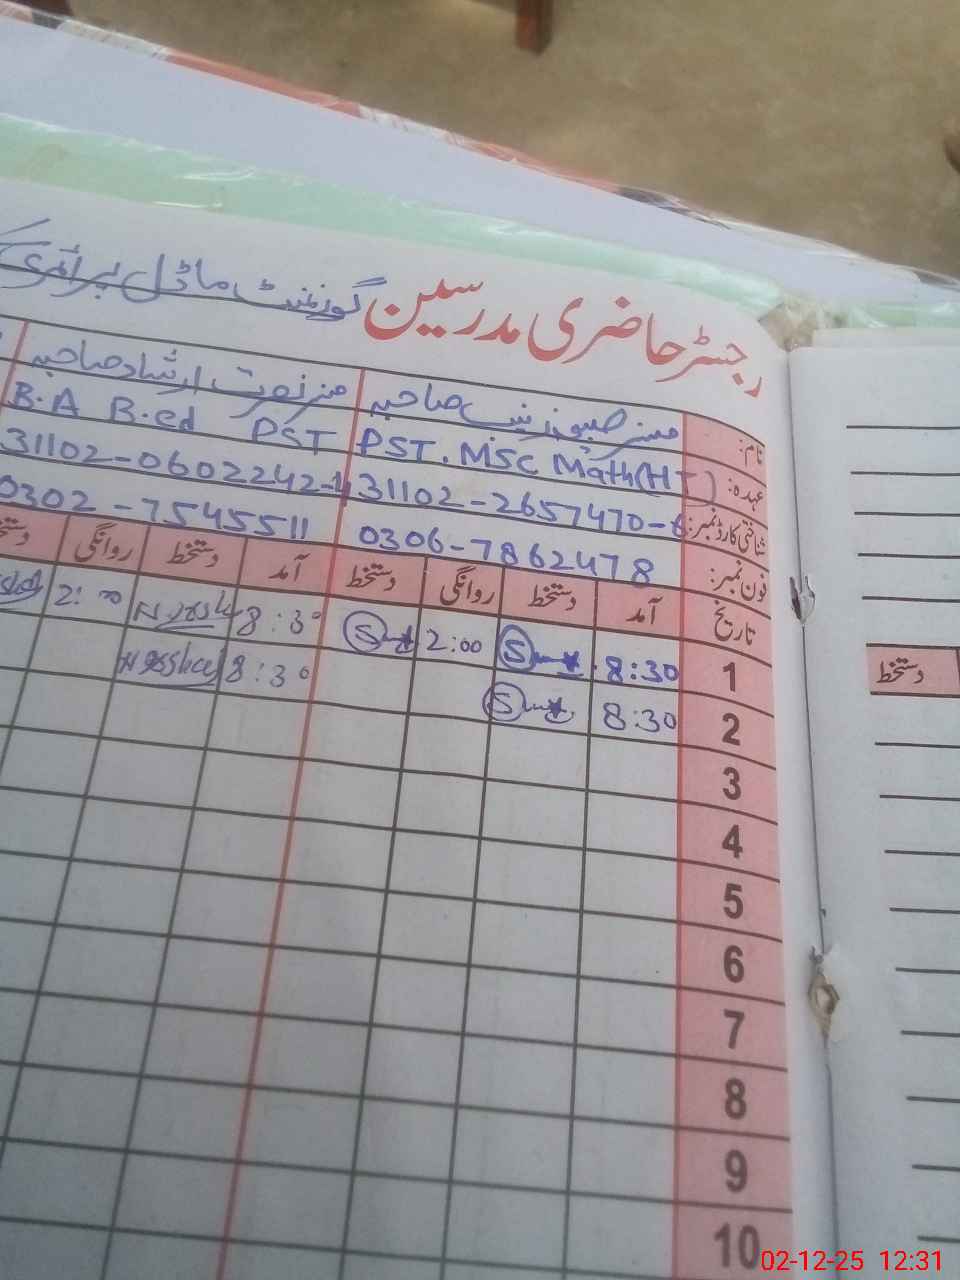 رجسٹر حاضری مدرسین گورنمنٹ ماڈل پرائمری
نام: مسز صاحبہ مسز نصرت ارشاد صاحبہ
عہدہ: PST. MSc Math(HT) B.A B.ed PST
شناختی کارڈ نمبر: 31102-2657470-6 31102-0602242-4
فون نمبر: 0306-7862478 0302-7545511
تاریخ آمد دستخط روانگی دستخط آمد دستخط روانگی دستخط
1 8:30 2:00 8:30 2:00
2 8:30 8:30
3
4
5
6
7
8
9
10
دستخط
02-12-25 12:31